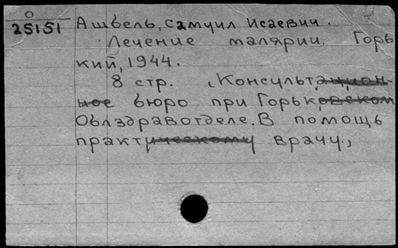 О
25151
Ашбель, Самуил Исаевич.
Лечение малярии. Горь
кий, 1944.
8 стр. (Консультацион-
ное бюро при Горьковском
Облздравотделе. В помощь
практическому врачу.)